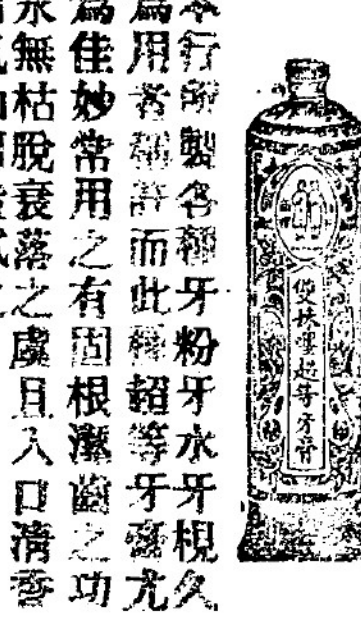 本行所製各種牙粉牙水牙梘久
為用者稱許而此種超等牙膏尤
為佳妙常用之有固根潔齒之功
永無枯脫衰落之虞且入口清香
雙妹嚜超等牙膏